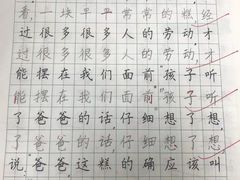 看,一块平平常常的糕经
过很多很多人的劳动,才
过很多很多人的劳动,才
能摆在我们面前孩子听
能摆在我们面前"孩子听
了爸爸的话仔细想了想
了爸爸的话,仔细想了想
说,爸爸这糕的确应该叫